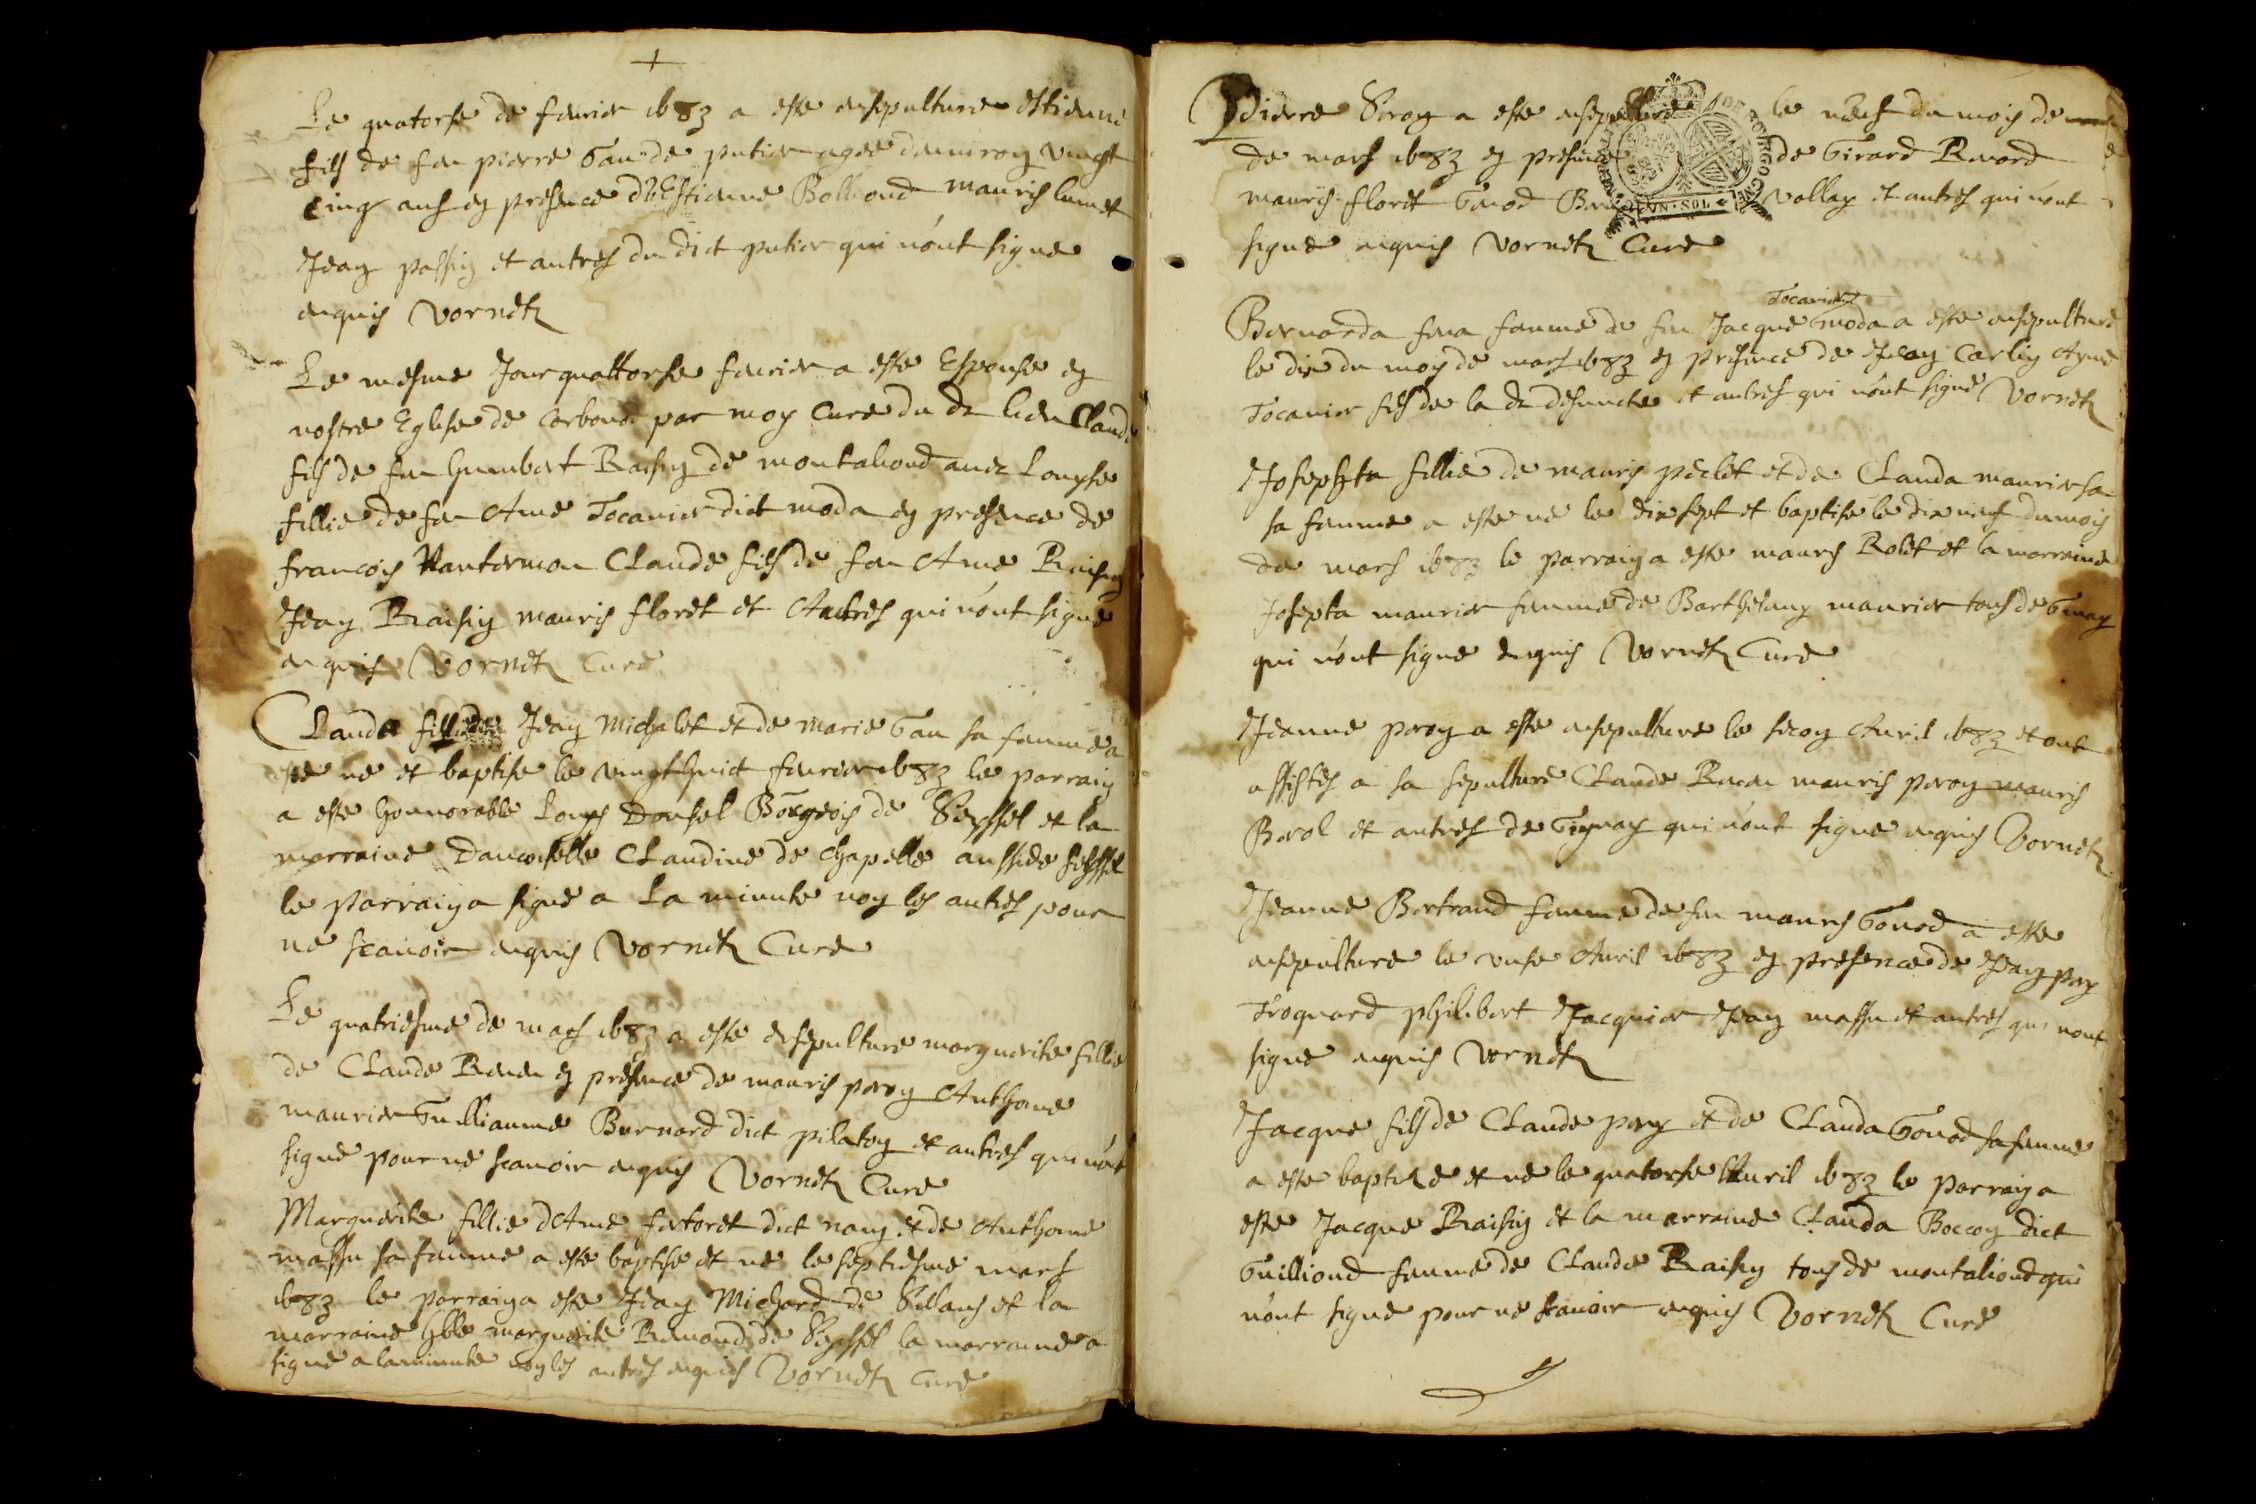 Le quatorse de feurier 1683 a este ensepulture estienne
fils de feu pierre Gau de putier agee denuiron vingt
cinq ans en presence d'Estienne Bolliond mauris lumet
Jean passin et autres du dict putier qui n'ont signe
enquis Vornetz
Le mesme Jour quattorse feurier a este Espouse en
nostre Eglise de Corbono par moy Cure du dt lieu Claude
fils de feu humbert Raisin de montaliond auec Louyse
fillie de feu Ame Tocanier dict moda en presence de
francois Vantermou Claude fils de feu Ame Raisin
Jean Raisin mauris floret et Autres qui n'ont signe
enquis Vornetz Cure
Clauda fillie de Jean Michalet et de marie Gau sa femme a
este ne et baptise le vingthuict feurier 1683 le parrain
a este honnorable Louys Donsel Bourgeois de Seyssel et la
marraine Damoiselle Claudine de chapelle aussi de seyssel
le parrain a signe a La minute non les autres pour
ne scauoir enquis Vornetz Cure
Le quatriesme de mars 1683 a este ensepulture marguerite fillie
de Claude Reuen en presence de mauris peron Anthoine
maurier Guilliaume Bernard dict pilaton et autres qui n'ont
signe pour ne scauoir enquis Vornetz Cure
Marguerite fillie d'Ame fertoret dict nany et de Anthoine
massu sa femme a este baptise et ne le septiesme mars
1683 le parrain a este Jean Michard de Sillans et la
marraine hble marguerite Remond de Seyssel la marraine a
signe a la minute non les autres enquis Vornetz Cure
Pierre Peron a este ensepulture le neuf du mois de
de mars 1683 en presence de Girard Reuord
mauris floret Genod vollay et autres qui n'ont
signe enquis Vornetz Cure
VN·SOL
Tocanier
Bernarda feua femme de feu Jacque moda a este ensepulture
le dix du moy de mars 1683 en presence de Jean Carlin Ayme
Tocanier fils de la dt defuncte et autres qui n'ont signe Vornetz
Josephta fillie de mauris peclet et de Clauda maurier sa
sa femme a este ne le dix sept et baptise le dix neuf du mois
de mars 1683 le parrain a este mauris Rolet et la marraine
Josepta maurier femme de Barthelamy maurier tous de Gignay
qui n'ont signe enquis Vornetz Cure
Jeanne peron a este ensepulture le secon Auril 1683 et ont
assistes a sa sepulture Claude Reuen mauris peron mauris
Berol et autres de Gignay qui n'ont signe enquis Vornetz
Jeanne Bertrand femme de feu mauris Gonod a este
ensepulture le vnse Auril 1683 en presence de Jean pery
Troquard philibert Jacquier Jean massu et autres qui nont
signe enquis Vornetz
Jacque fils de Claude pery et de Clauda Gonod sa femme
a este baptise et ne le quatorse Auril 1683 le parrain a
este Jacque Raisin et la marraine Clauda Boccon dict
Guilliond femme de Claude Raisin tous de montaliond qui
n'ont signe pour ne scauoir enquis Vornetz Cure